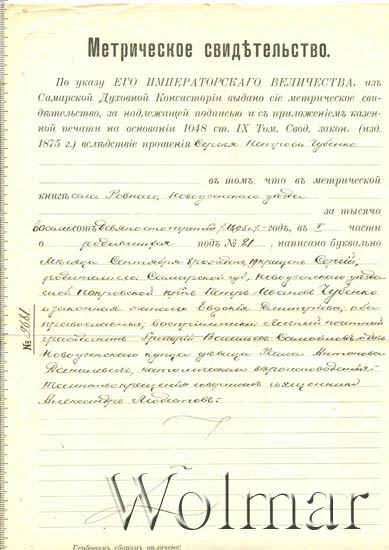 Метрическое свидѣтельство.
По указу ЕГО ИМПЕРАТОРСКАГО ВЕЛИЧЕСТВА, изъ
Самарской Духовной Консисторіи выдано сіе метрическое сви-
дѣтельство, за надлежащей подписью и съ приложеніемъ казен-
ной печати на основаніи 1048 ст. IX Том. Свод. закон. (изд.
1875 г.) вслѣдствіе прошенія Сергѣя Петрова Чубенко
въ томъ, что въ метрической
книгѣ села Ровнаго, Новоузенскаго уѣзда
за тысяча
восемьсотъ девяносто годъ, въ I части
о родившихся подъ № 21, написано буквально
Мѣсяца Сентября крещенъ Сергій,
родители Самарской губ., Новоузенскаго уѣзда
слоб. Покровской Петръ Ивановъ Чубенко
и законная жена его Евдокія Димитріева, оба
православные, воспріемники
гражданинъ Григорій Васильевъ
Новоузенскаго купца дѣвица Антонова
католическаго вѣроисповѣданія.
Таинство крещенія совершалъ священникъ
Александръ
№ 2661
Гербовымъ сборомъ оплачено:
Wolmar